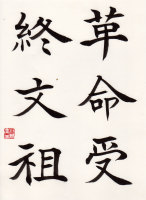 革命受
終文祖